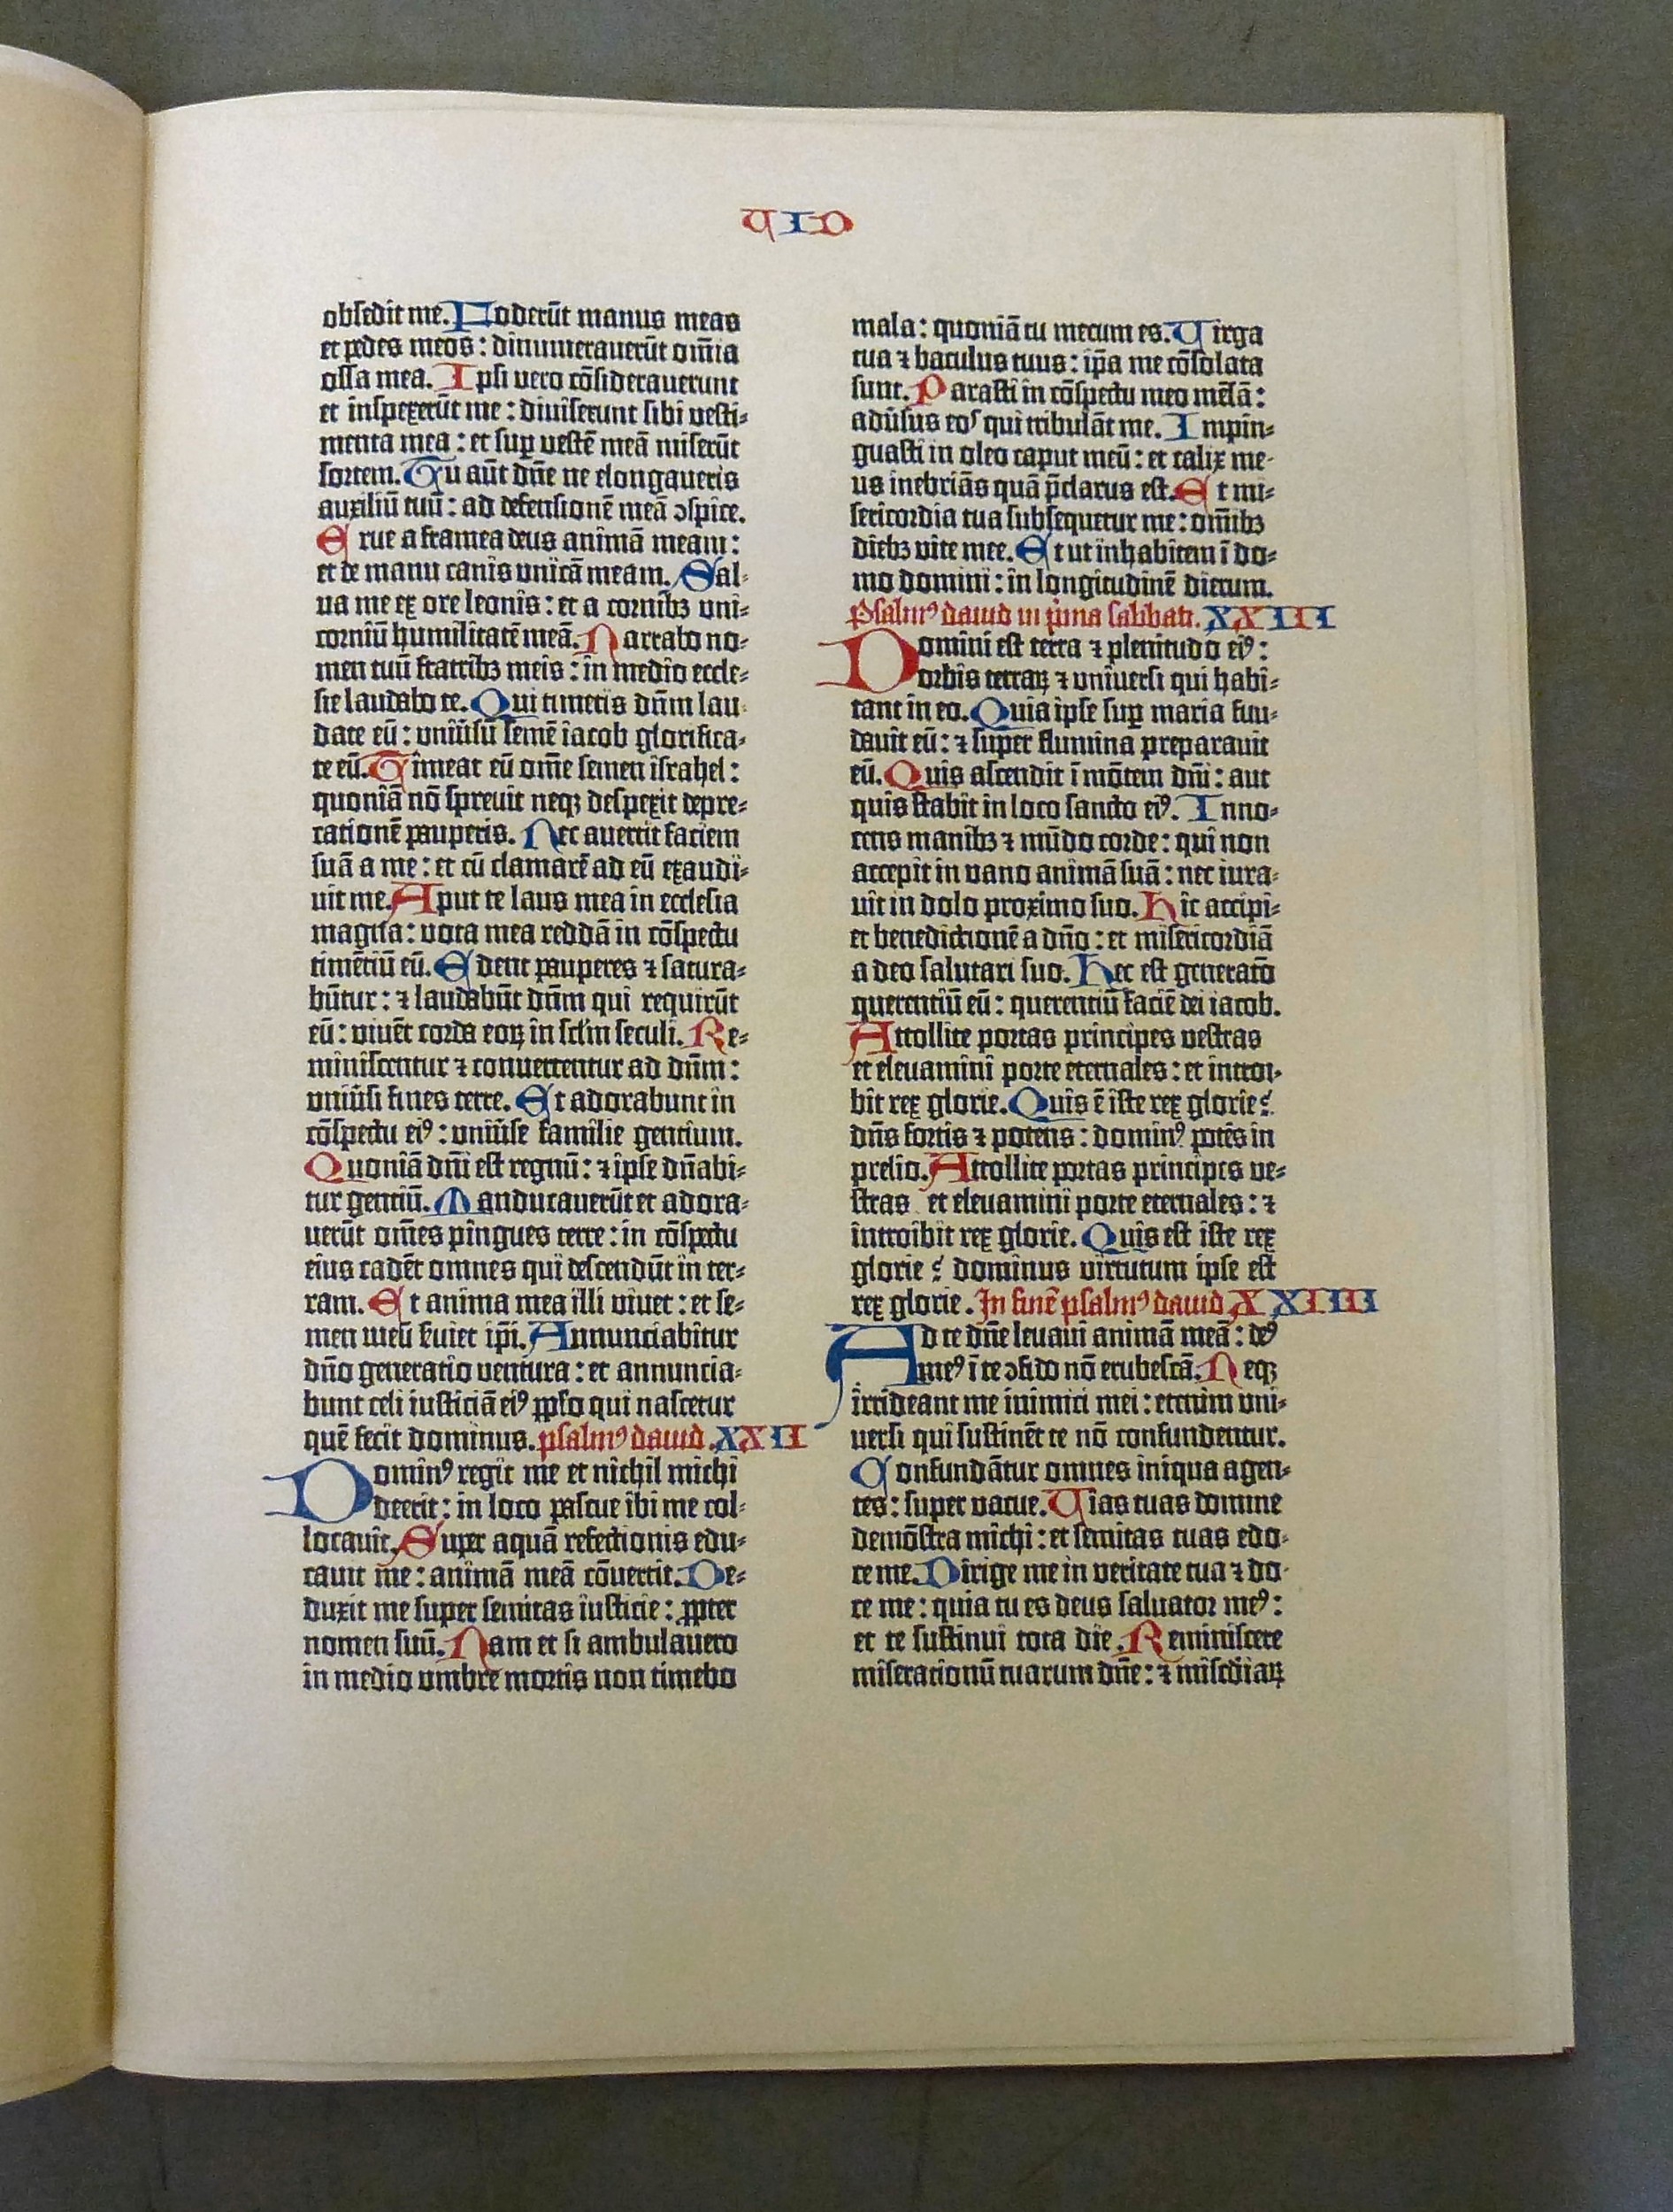 VID
obsedit me. Foderūt manus meas
et pedes meos : dinumerauerūt om̄ia
ossa mea. Ipsi vero cōsiderauerunt
et inspexerūt me : diuiserunt sibi vesti⸗
menta mea : et sup̱ vestē meā miserūt
sortem. Tu aūt dn̄e ne elongaueris
auxiliū tuū : ad defensionē meā ↄspice.
Erue a framea deus animā meam :
et de manu canis vnicā meam. Sal⸗
ua me ex ore leonis : et a cornibꝫ vni⸗
corniū humilitatē meā. Narrabo no⸗
men tuū fratribꝫ meis : in medio eccle⸗
sie laudabo te. Qui timetis dn̄m lau⸗
date eū : vniūsū semē iacob glorifica⸗
te eū. Timeat eū om̄e semen israhel :
quoniā nō spreuit neqꝫ despexit depre⸗
cationē pauperis. Nec auertit faciem
suā a me : et cū clamarē ad eū exaudi⸗
uit me. Aput te laus mea in ecclesia
magna : vota mea reddā in cōspectu
timētiū eū. Edent pauperes ⁊ satura⸗
būtur : ⁊ laudabūt dn̄m qui requirūt
eū : viuēt corda eoꝝ in sc̄lm seculi. Re⸗
miniscentur ⁊ conuertentur ad dn̄m :
vniūsi fines terre. Et adorabunt in
cōspectu eiꝰ : vniūse familie gentium.
Quoniā dn̄i est regnū : ⁊ ipse dn̄abi⸗
tur gentiū. Manducauerūt et adora⸗
uerūt om̄es pingues terre : in cōspectu
eius cadēt omnes qui descendūt in ter⸗
ram. Et anima mea illi viuet : et se⸗
men meū seruiet ip̄i. Annunciabitur
dn̄o generatio ventura : et annuncia⸗
bunt celi iusticiā eiꝰ pp̄lo qui nascetur
quē fecit dominus. psalmꝰ dauid. XXII
Dominꝰ regit me et nichil michi
deerit : in loco pascue ibi me col⸗
locauit. Super aquā refectionis edu⸗
cauit me : animā meā cōuertit. De⸗
duxit me super semitas iusticie : ꝓpter
nomen suū. Nam et si ambulauero
in medio vmbre mortis non timebo
mala : quoniā tu mecum es. Virga
tua ⁊ baculus tuus : ip̄a me cōsolata
sunt. Parasti in cōspectu meo mēsā :
adūsus eos qui tribulāt me. Impin⸗
guasti in oleo caput meū : et calix me⸗
us inebriās quā p̄clarus est. Et mi⸗
sericordia tua subsequetur me : om̄ibꝫ
diebꝫ vite mee. Et ut inhabitem ī do⸗
mo domini : in longitudinē dierum.
Psalmꝰ dauid in prima sabbati. XXIII
Domini est terra ⁊ plenitudo eiꝰ :
orbis terraꝝ ⁊ vniuersi qui habi⸗
tant in eo. Quia ipse sup̱ maria fun⸗
dauit eū : ⁊ super flumina preparauit
eū. Quis ascendit ī mōtem dn̄i : aut
quis stabit in loco sancto eiꝰ. Inno⸗
cens manibꝫ ⁊ mūdo corde : qui non
accepit in vano animā suā : nec iura⸗
uit in dolo proximo suo. Hic accipi⸗
et benedictionē a dn̄o : et misericordiā
a deo salutari suo. Hec est generatō
querentiū eū : querentiū faciē dei iacob.
Attollite portas principes vestras
et eleuamini porte eternales : et introi⸗
bit rex glorie. Quis ē iste rex glorie?
dn̄s fortis ⁊ potens : dominꝰ potēs in
prelio. Attollite portas principes ve⸗
stras et eleuamini porte eternales : ⁊
introibit rex glorie. Quis est iste rex
glorie ? dominus virtutum ipse est
rex glorie. In finē psalmꝰ dauid XXIIII
Ad te dn̄e leuaui animā meā : deꝰ
meꝰ ī te ↄfido nō erubescā. Neqꝫ
irrideant me inimici mei : etenim vni⸗
uersi qui sustinēt te nō confundentur.
Confundātur omnes iniqua agen⸗
tes : super vacue. Vias tuas domine
demōstra michi : et semitas tuas edo⸗
ce me. Dirige me in veritate tua ⁊ do⸗
ce me : quia tu es deus saluator meꝰ :
et te sustinui tota die. Reminiscere
miserationū tuarum dn̄e : ⁊ miscd̄iaꝝ